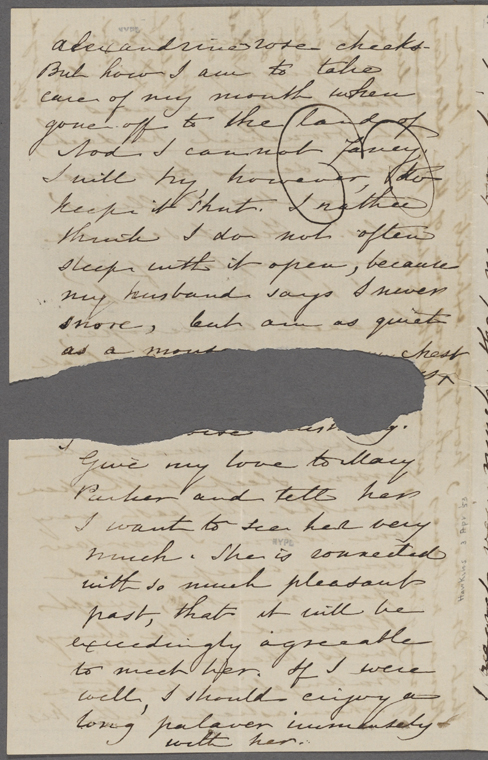 alexandrine rose cheeks.
But how I am to take
care of my mouth when
gone off to the land of
Nod I cannot fancy.
I will try, however, to
keep it shut. I rather
think I do not often
sleep with it open, because
my husband says I never
snore, but am as quiet
as a mouse chest
Give my love to Mary
Parker and tell her
I want to see her very
much. She is connected
with so much pleasant
past, that it will be
exceedingly agreeable
to meet her. If I were
well, I should enjoy a
long palaver immensely
with her.